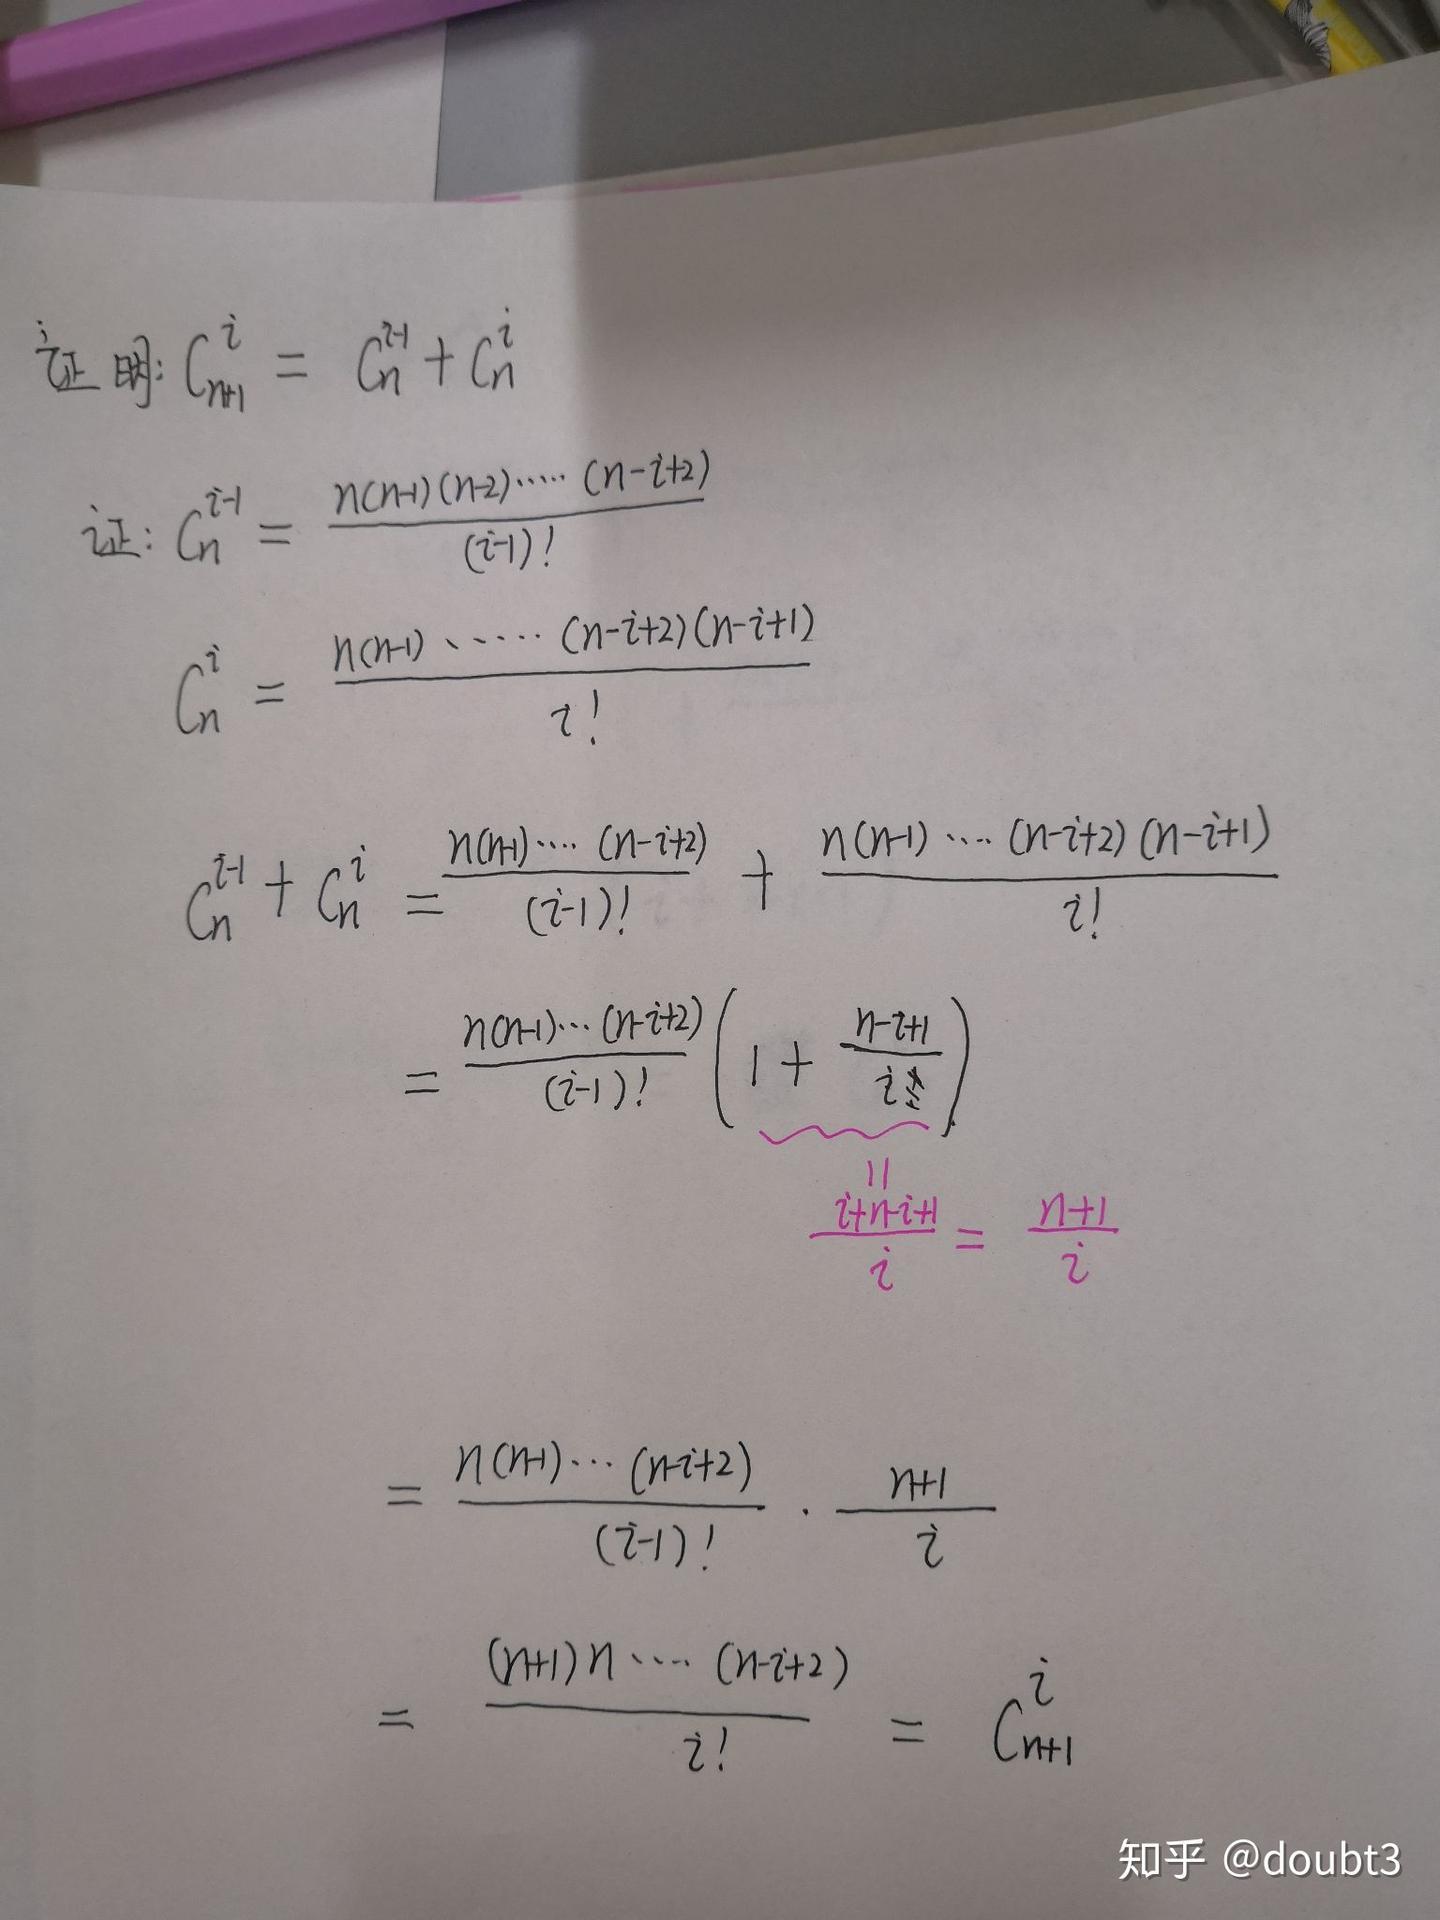 证明: C_{n+1}^{i} = C_n^{i-1} + C_n^i
证: C_n^{i-1} = \frac{n(n-1)(n-2)\cdots\cdot(n-i+2)}{(i-1)!}
C_n^i = \frac{n(n-1)\cdots\cdots(n-i+2)(n-i+1)}{i!}
C_n^{i-1} + C_n^i = \frac{n(n-1)\cdots(n-i+2)}{(i-1)!} + \frac{n(n-1)\cdots(n-i+2)(n-i+1)}{i!}
= \frac{n(n-1)\cdots(n-i+2)}{(i-1)!} \left( 1 + \frac{n-i+1}{i} \right)
=
\frac{i+n-i+1}{i} = \frac{n+1}{i}
= \frac{n(n-1)\cdots(n-i+2)}{(i-1)!} \cdot \frac{n+1}{i}
= \frac{(n+1)n\cdots(n-i+2)}{i!} = C_{n+1}^i
知乎 @doubt3